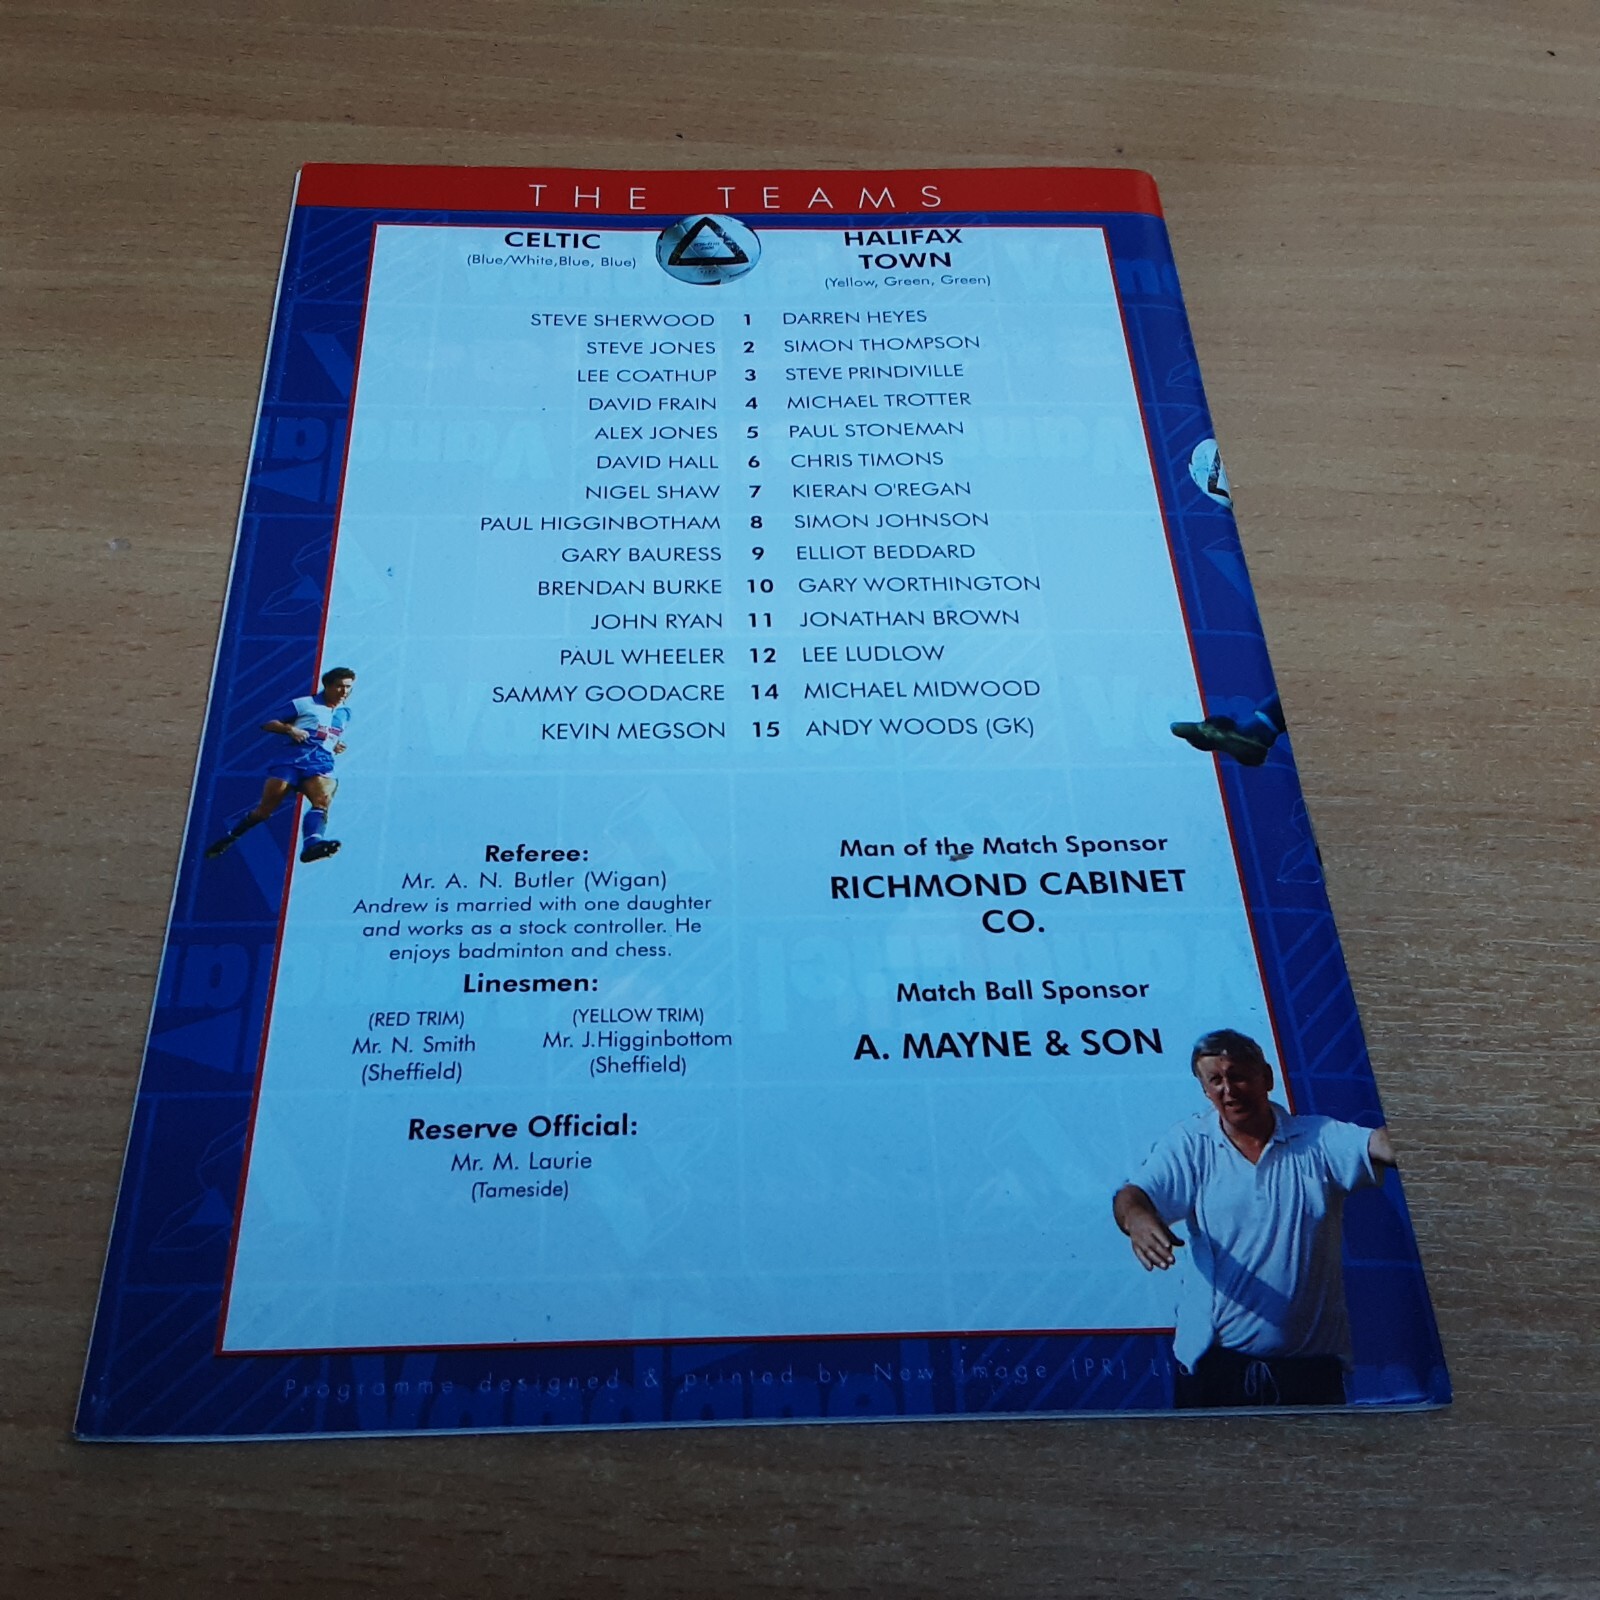 THE TEAMS
CELTIC
(Blue/White,Blue, Blue)
HALIFAX
TOWN
(Yellow, Green, Green)
STEVE SHERWOOD 1 DARREN HEYES
STEVE JONES 2 SIMON THOMPSON
LEE COATHUP 3 STEVE PRINDIVILLE
DAVID FRAIN 4 MICHAEL TROTTER
ALEX JONES 5 PAUL STONEMAN
DAVID HALL 6 CHRIS TIMONS
NIGEL SHAW 7 KIERAN O'REGAN
PAUL HIGGINBOTHAM 8 SIMON JOHNSON
GARY BAURESS 9 ELLIOT BEDDARD
BRENDAN BURKE 10 GARY WORTHINGTON
JOHN RYAN 11 JONATHAN BROWN
PAUL WHEELER 12 LEE LUDLOW
SAMMY GOODACRE 14 MICHAEL MIDWOOD
KEVIN MEGSON 15 ANDY WOODS (GK)
Referee:
Mr. A. N. Butler (Wigan)
Andrew is married with one daughter
and works as a stock controller. He
enjoys badminton and chess.
Linesmen:
(RED TRIM)
Mr. N. Smith
(Sheffield)
(YELLOW TRIM)
Mr. J.Higginbottom
(Sheffield)
Reserve Official:
Mr. M. Laurie
(Tameside)
Man of the Match Sponsor
RICHMOND CABINET
CO.
Match Ball Sponsor
A. MAYNE & SON
Programme designed & printed by New Image (PR) Ltd